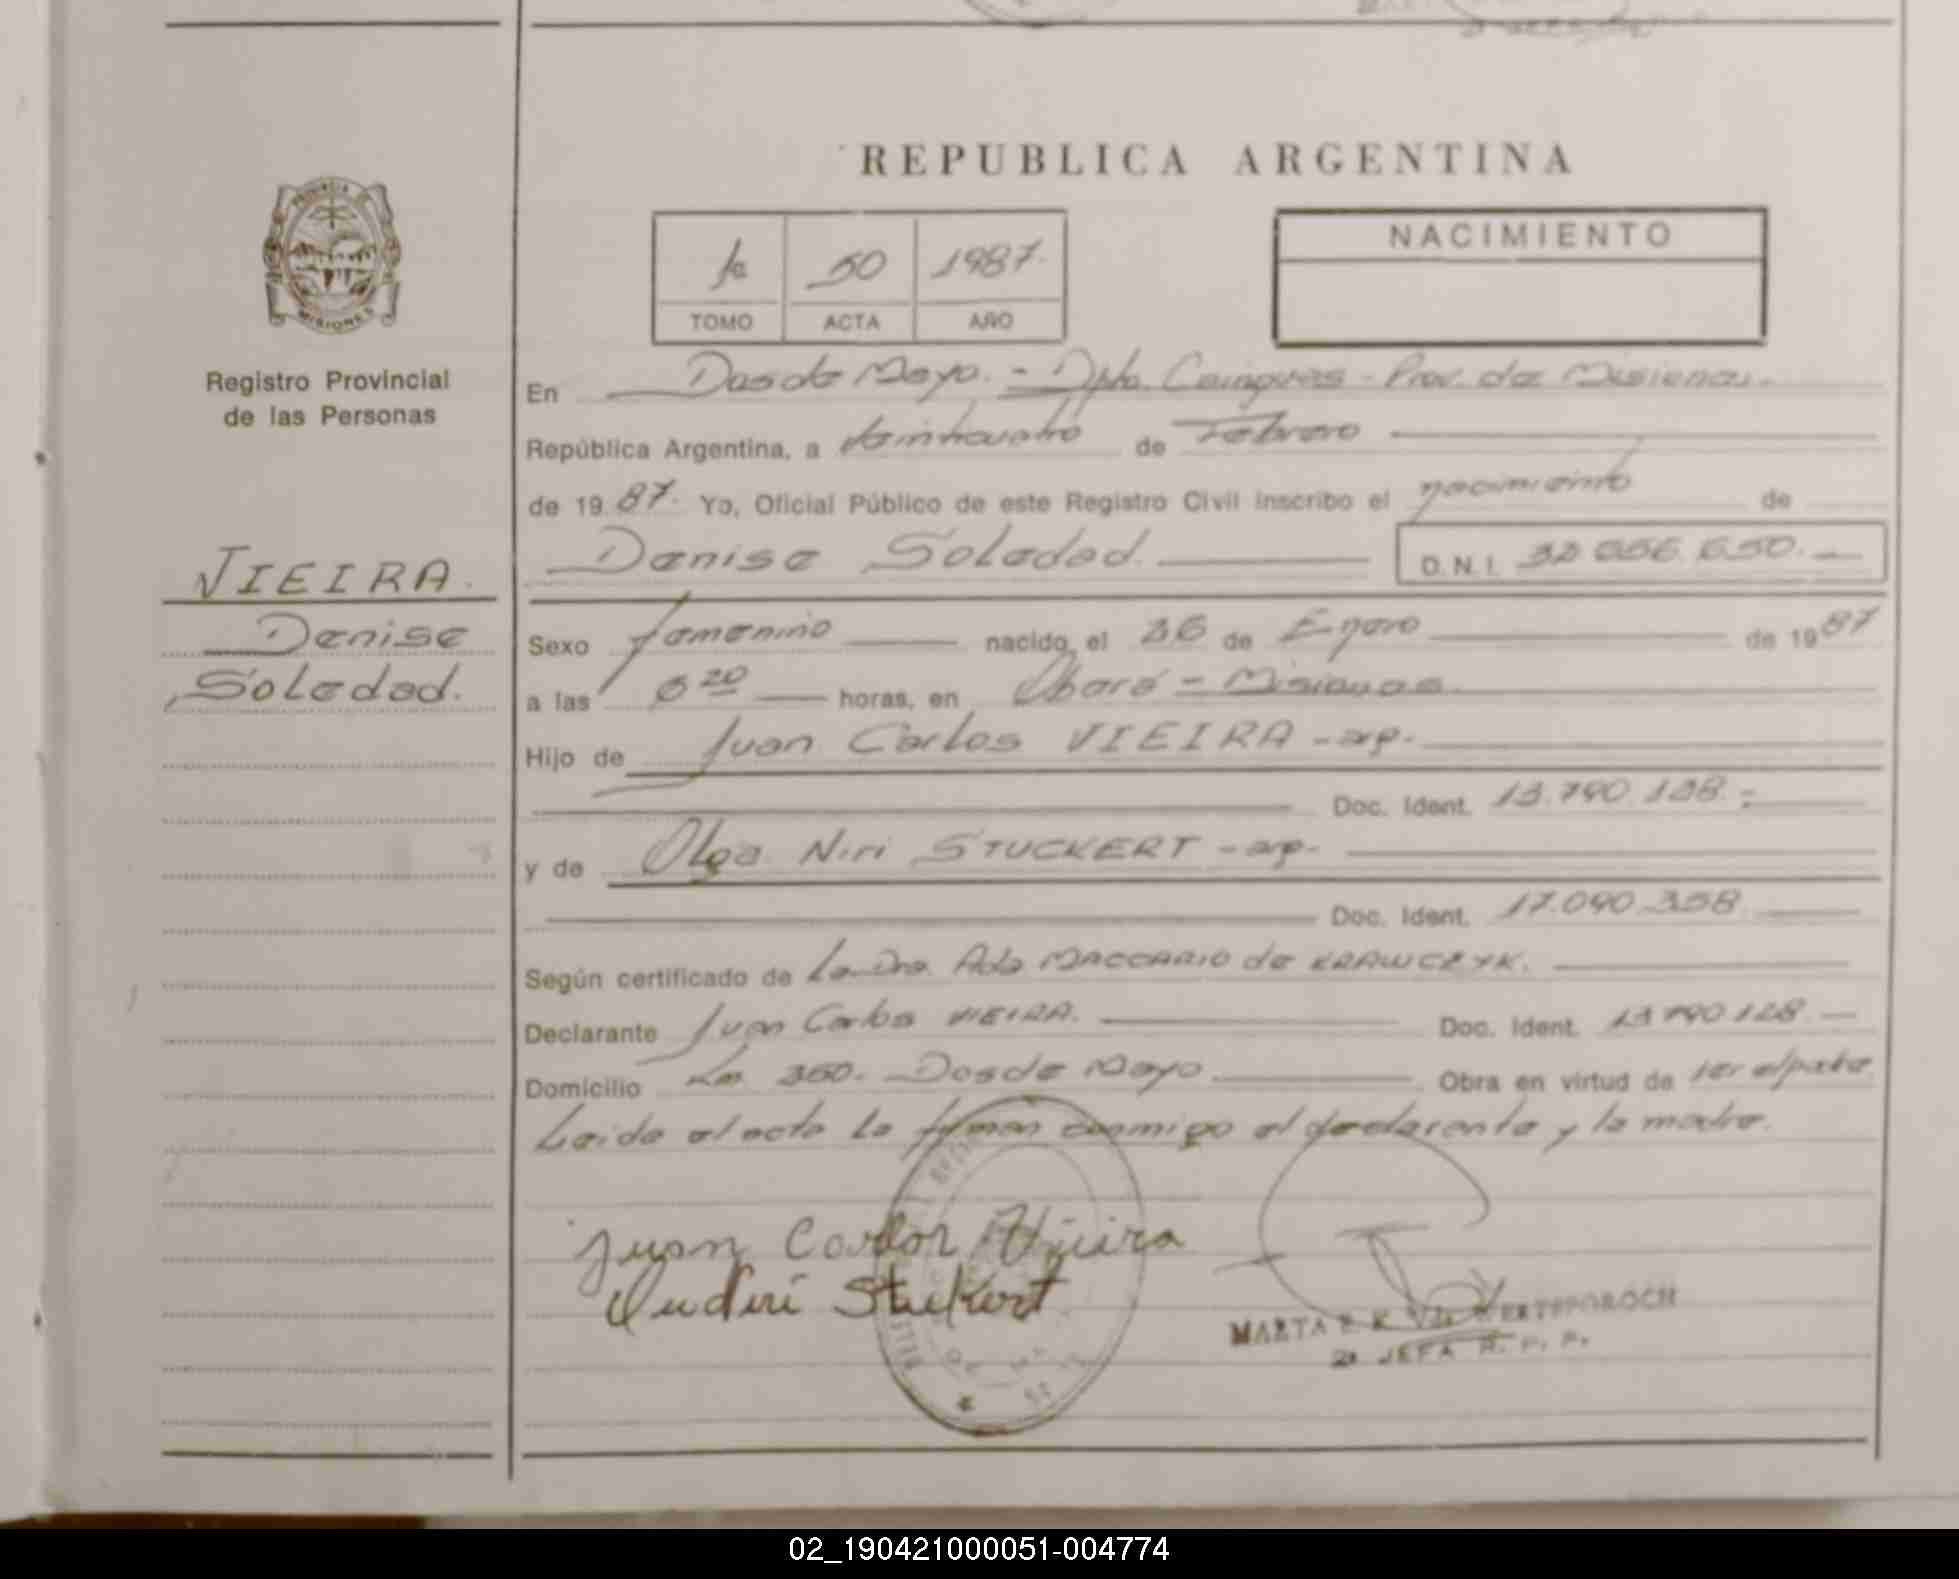 REPUBLICA ARGENTINA
PROVINCIA DE
MISIONES
Registro Provincial
de las Personas
1a 50 1987.
TOMO ACTA AÑO
NACIMIENTO
En Dos de Mayo. - Dpto. Cainguás - Prov. de Misiones.
República Argentina, a veinticuatro de Febrero
de 19 87. Yo, Oficial Público de este Registro Civil inscribo el nacimiento de
Denise Soledad. D.N.I. 32 656.650.
VIEIRA.
Denise
Soledad.
Sexo femenino nacido el 26 de Enero de 19 87
a las 6 20 horas, en Oberá - Misiones.
Hijo de Juan Carlos VIEIRA - arg.
Doc. Ident. 13.790.128.-
y de Olga Niri STUCKERT - arg.
Doc. Ident. 17.090.358.
Según certificado de La Dra. Ada MACCARIO de KRAWCZYK.
Declarante Juan Carlos VIEIRA. Doc. Ident. 13 790 128.
Domicilio Km 350. Dos de Mayo Obra en virtud de ser el padre
Leída el acta la firman conmigo el declarante y la madre.
Juan Carlos Vieira
Stuckert
MARTA
2a JEFA R. P. P.
02_190421000051-004774